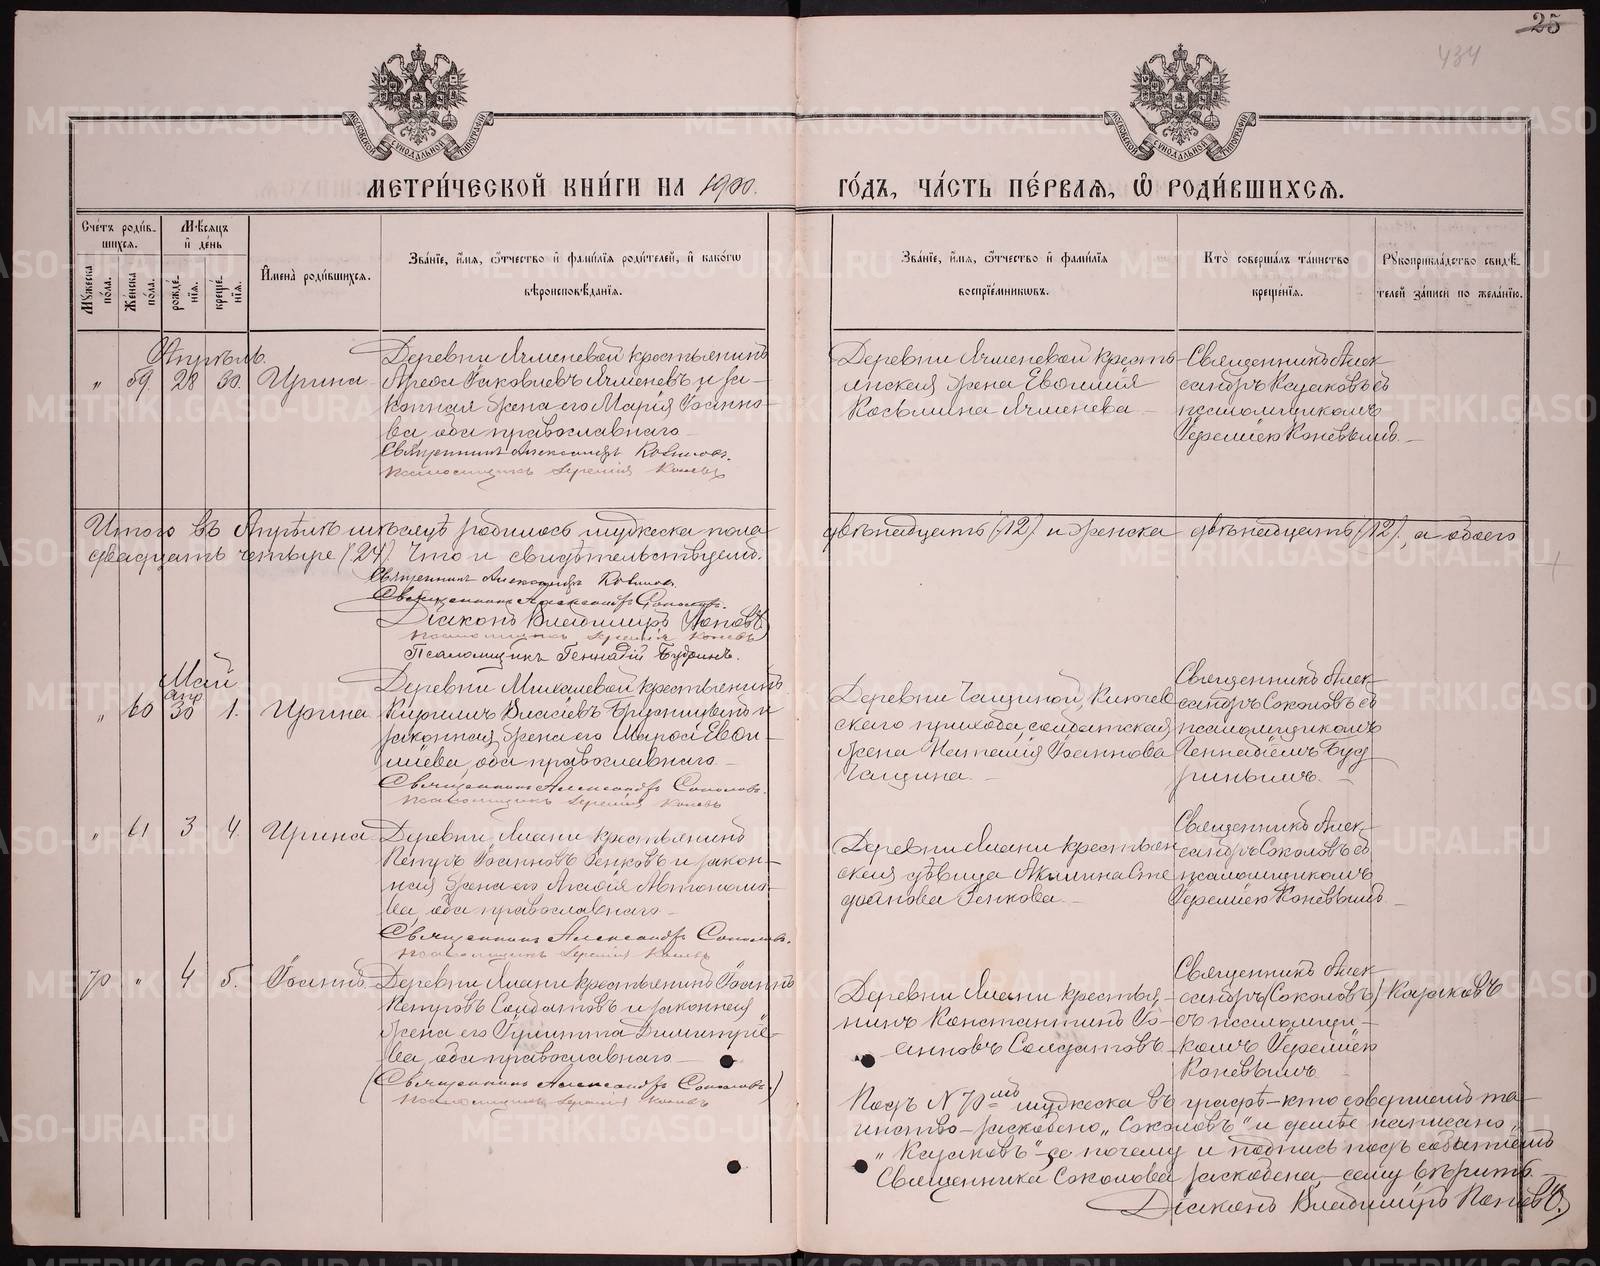 25
434
МЕТРИ́ЧЕСКОЙ КНИ́ГИ НА 1900.
ГО́ДЪ, ЧА́СТЬ ПЕ́РВАѦ, Ѡ҆ РОДИ́ВШИХСѦ.
МОСКОВСКОЙ СѴНОДАЛЬНОЙ ТИПОГРАФІИ
МОСКОВСКОЙ СѴНОДАЛЬНОЙ ТИПОГРАФІИ
Сче́тъ роди́вшихсѧ.
Мꙋ́жеска по́ла.
Же́нска по́ла.
Мѣ́сѧцъ и҆ де́нь
рожде́нїѧ.
креще́нїѧ.
И҆мена̀ роди́вшихсѧ.
Зва́нїе, и҆́мѧ, ѻ҆́тчество и҆ фами́лїѧ роди́телей, и҆ како́гѡ
вѣроисповѣ́данїѧ.
Зва́нїе, и҆́мѧ, ѻ҆́тчество и҆ фами́лїѧ
воспрїе́мникѡвъ.
Кто̀ соверша́лъ та́инство
креще́нїѧ.
Рꙋкоприкла́дство свидѣ́телей за́писи по жела́нїю.
Апрѣль.
" 59. 28 30. Ирина
Деревни Ячменевой крестьянинъ
Яковлевъ Ячменевъ и законная жена его Марія Іоаннова, оба православнаго
Священникъ Александръ
Псаломщикъ Іеремія Коневъ
Деревни Ячменевой крестьянская жена Евѳимія
Козьмина Ячменева
Священникъ Александръ Казаковъ съ
псаломщикомъ
Іереміею Коневымъ.
Итого въ Апрѣлѣ мѣсяцѣ родилось мужеска пола двѣнадцать (12) и женска двѣнадцать (12), а обоего
двадцать четыре (24). Что и свидѣтельствуемъ.
Священникъ Александръ
Священникъ Александръ Соколовъ.
Діаконъ Владиміръ Поповъ
Псаломщикъ Іеремія Коневъ
Псаломщикъ Геннадій Будринъ.
Май
апр
" 60 30 1. Ирина
Деревни крестьянинъ
Кириллъ Власіевъ и
законная жена его Евѳиміева, оба православнаго
Священникъ Александръ Соколовъ.
Псаломщикъ Іеремія Коневъ
Деревни Чащиной, Ключевскаго прихода, солдатская
жена Наталія Іоаннова
Чащина.
Священникъ Александръ Соколовъ съ
псаломщикомъ
Геннадіемъ Будринымъ.
" 61 3 4. Ирина
Деревни крестьянинъ
Петръ Іоанновъ Зенковъ и законная жена его Агаѳія Автономова, оба православнаго
Священникъ Александръ Соколовъ.
Псаломщикъ Іеремія Коневъ
Деревни крестьянская дѣвица Акилина Стефанова Зенкова.
Священникъ Александръ Соколовъ съ
псаломщикомъ
Іереміею Коневымъ.
70 " 4 5. Іоаннъ.
Деревни крестьянинъ Іоаннъ
Петровъ Солдатовъ и законная
жена его Іулитта Димитріева, оба православнаго
(Священникъ Александръ Соколовъ.)
Псаломщикъ Іеремія Коневъ
Деревни крестьянинъ Константинъ Іоанновъ Солдатовъ
Священникъ Александръ (Соколовъ) Казаковъ
съ псаломщикомъ Іереміею
Коневымъ
Подъ N 70мъ мужеска въ графѣ – кто совершалъ таинство – заскоблено „Соколовъ“ и далѣе написано
„Казаковъ“ – почему и подпись подъ событіемъ
Священника Соколова заскоблена – сему вѣрить.
Діаконъ Владиміръ Поповъ.
METRIKI.GASO-URAL.RU